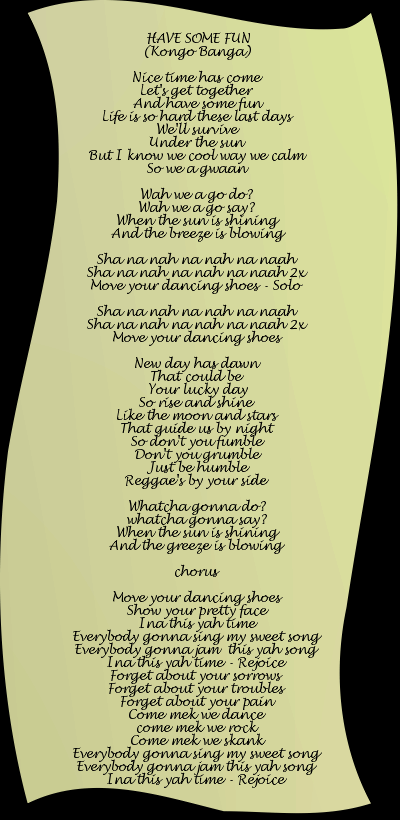 HAVE SOME FUN
(Kongo Banga)
Nice time has come
Let's get together
And have some fun
Life is so hard these last days
We'll survive
Under the sun
But I know we cool way we calm
So we a gwaan
Wah we a go do?
Wah we a go say?
When the sun is shining
And the breeze is blowing
Sha na nah na nah na naah
Sha na nah na nah na naah 2x
Move your dancing shoes - Solo
Sha na nah na nah na naah
Sha na nah na nah na naah 2x
Move your dancing shoes
New day has dawn
That could be
Your lucky day
So rise and shine
Like the moon and stars
That guide us by night
So don't you fumble
Don't you grumble
Just be humble
Reggae's by your side
Whatcha gonna do?
whatcha gonna say?
When the sun is shining
And the greeze is blowing
chorus
Move your dancing shoes
Show your pretty face
Ina this yah time
Everybody gonna sing my sweet song
Everybody gonna jam this yah song
Ina this yah time - Rejoice
Forget about your sorrows
Forget about your troubles
Forget about your pain
Come mek we dance
come mek we rock
Come mek we skank
Everybody gonna sing my sweet song
Everybody gonna jam this yah song
Ina this yah time - Rejoice